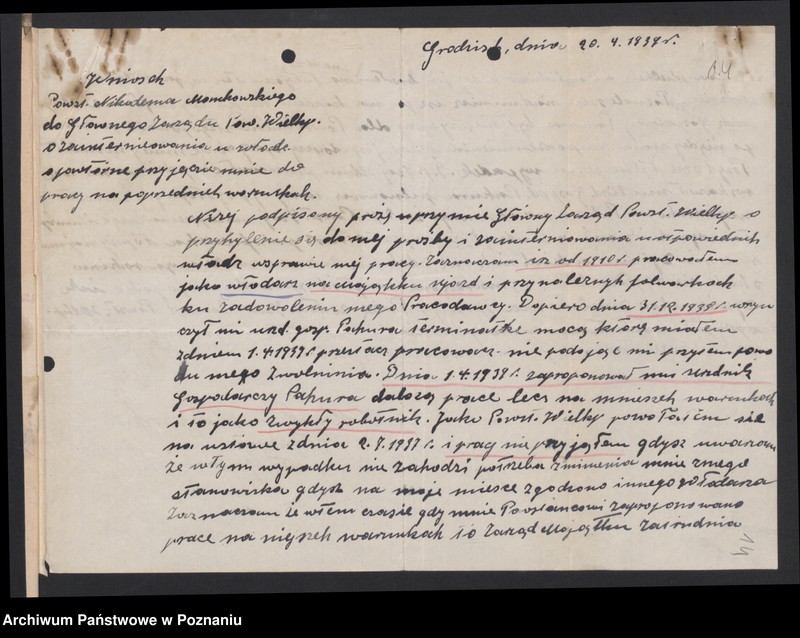 Grodzisk, dnia 20.4.1939 r.
Wniosek
Powst. Nikodema Momkowskiego
do Głównego Zarządu Pow. Wielkp.
o zainterniowania u władz
o powtórne przyjęcie mnie do
pracy na poprzednich warunkach.
Niżej podpisany proszę uprzymie Główny Zarząd Powst. Wielkp o
przyhylenie się do mej prośby i zainterniowania u odpowiednich
władz wsprawie mej pracy. Zaznaczam iż od 1910 r. pracowałem
jako włodarz na majątku Ujazd i przynależnych folwarkach
ku zadowoleniu mego Pracodawcy. Dopiero dnia 31.12.1938 r. wrę
czył mi urzd. gosp. Pahura terminatkę mocą którą miałem
zdniem 1.4.1939 r przestać pracować. nie podając mi przytem powo
du mego zwolninia. Dnia 1.4.1939 r. zaproponował mi urzędnik
Gospodarczy Pahura dalszą prace lecz na mniszch warunkach
i to jako zwykły robotnik. Jako Powst. Wielkp powołałem się
na ustawe zdnia 2.7.1937 r. i pracy nie przyjąłem gdysz uwarzam
że wtym wypadku nie zahodzi potrzeba zminienia mnie z mego
stanowiska gdysz na moje miesce zgodzono innego włodarza
Zaznaczam że wtem czasie gdy mnie Powstancowi zaproponowano
prace na niższch warunkach to Zarząd Majątku zatrudnia
14
Archiwum Państwowe w Poznaniu